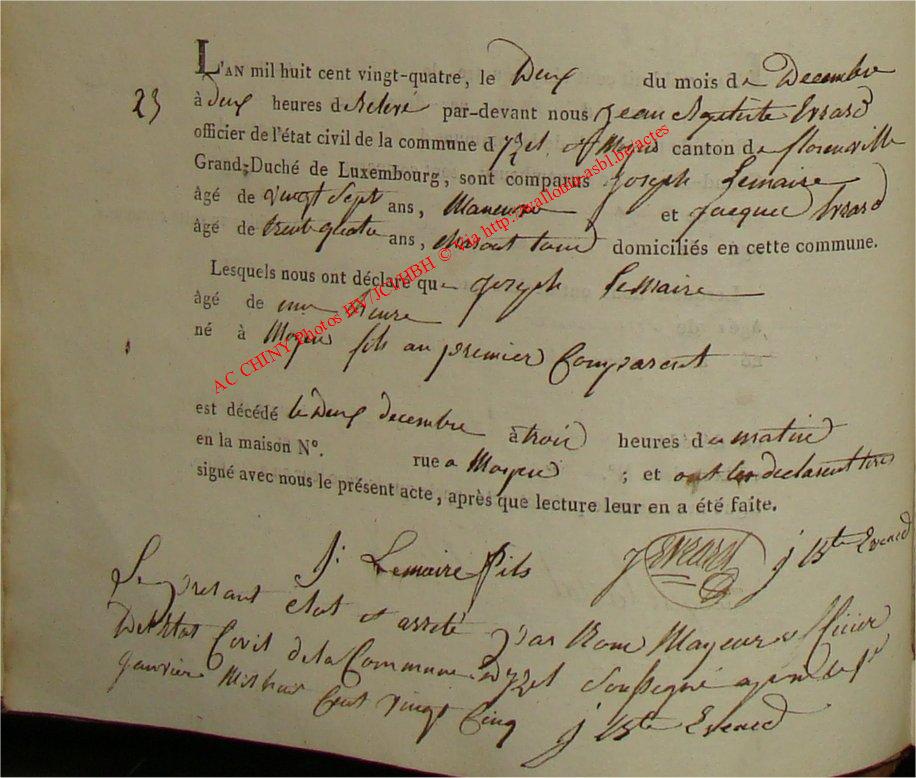 L'AN mil huit cent vingt-quatre, le Deux du mois de Decembre
23 à deux heures de Relevé par-devant nous Jean Baptiste Evrard
officier de l'état civil de la commune d'Izel et Moyen canton de florenville
Grand-Duché de Luxembourg, sont comparus Joseph Lemaire
âgé de vingt Sept ans, Maneuvre et Jacques Evrard
âgé de trente quatre ans, domiciliés en cette commune.
Lesquels nous ont déclaré que Joseph LeMaire
âgé de une heure
né à Moyen fils au premier Comparent
est décédé le Deux decembre à trois heures du matin
en la maison N°. rue a Moyen ; et ont les declarent tous
signé avec nous le présent acte, après que lecture leur en a été faite.
J: Lemaire fils J Evrard J Bte Evrard
Le present état et arrete par Nous Mayeur officier
De letat Civil de la Commune d'Izel Soussigné a izel le 1er
Janvier Mil huit Cent vingt Cinq J Bte Evrard
AC CHINY Photos HY7JCVHBH © via http://wallonia-asbl.be/actes